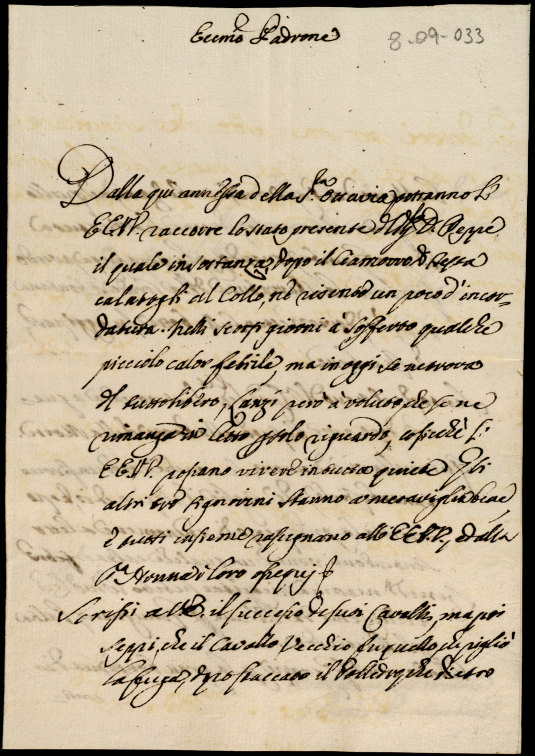 Eccmo Padrone
8-09-033
Dalla qui annessa della Sra Ottavia potranno le
EE.VV. raccorre lo stato presente del D. Peppe
il quale in sostanza, dopo il Ciamorro di testa
calatogli al Collo, nè risente un poco d'incor-
datura. Nelli scorsi giorni à sofferto qualche
picciolo calor febrile, ma in oggi se ne trova
del tutto libero, Lanzi però à voluto che se ne
rimanga in letto p solo riguardo, cosichè
EE.VV. possano vivere in tutta quiete. Gli
altri tre Signorini stanno a meraviglia bene
e tutti insieme rassegnano alle EE.VV., ed alla
Nonna i loro ossequj
Scrissi a VE. il successo de suoi Cavalli, ma poi
seppi, che il Cavallo Vecchio fu quello che pigliò
la fuga, dopo staccato il che dietro